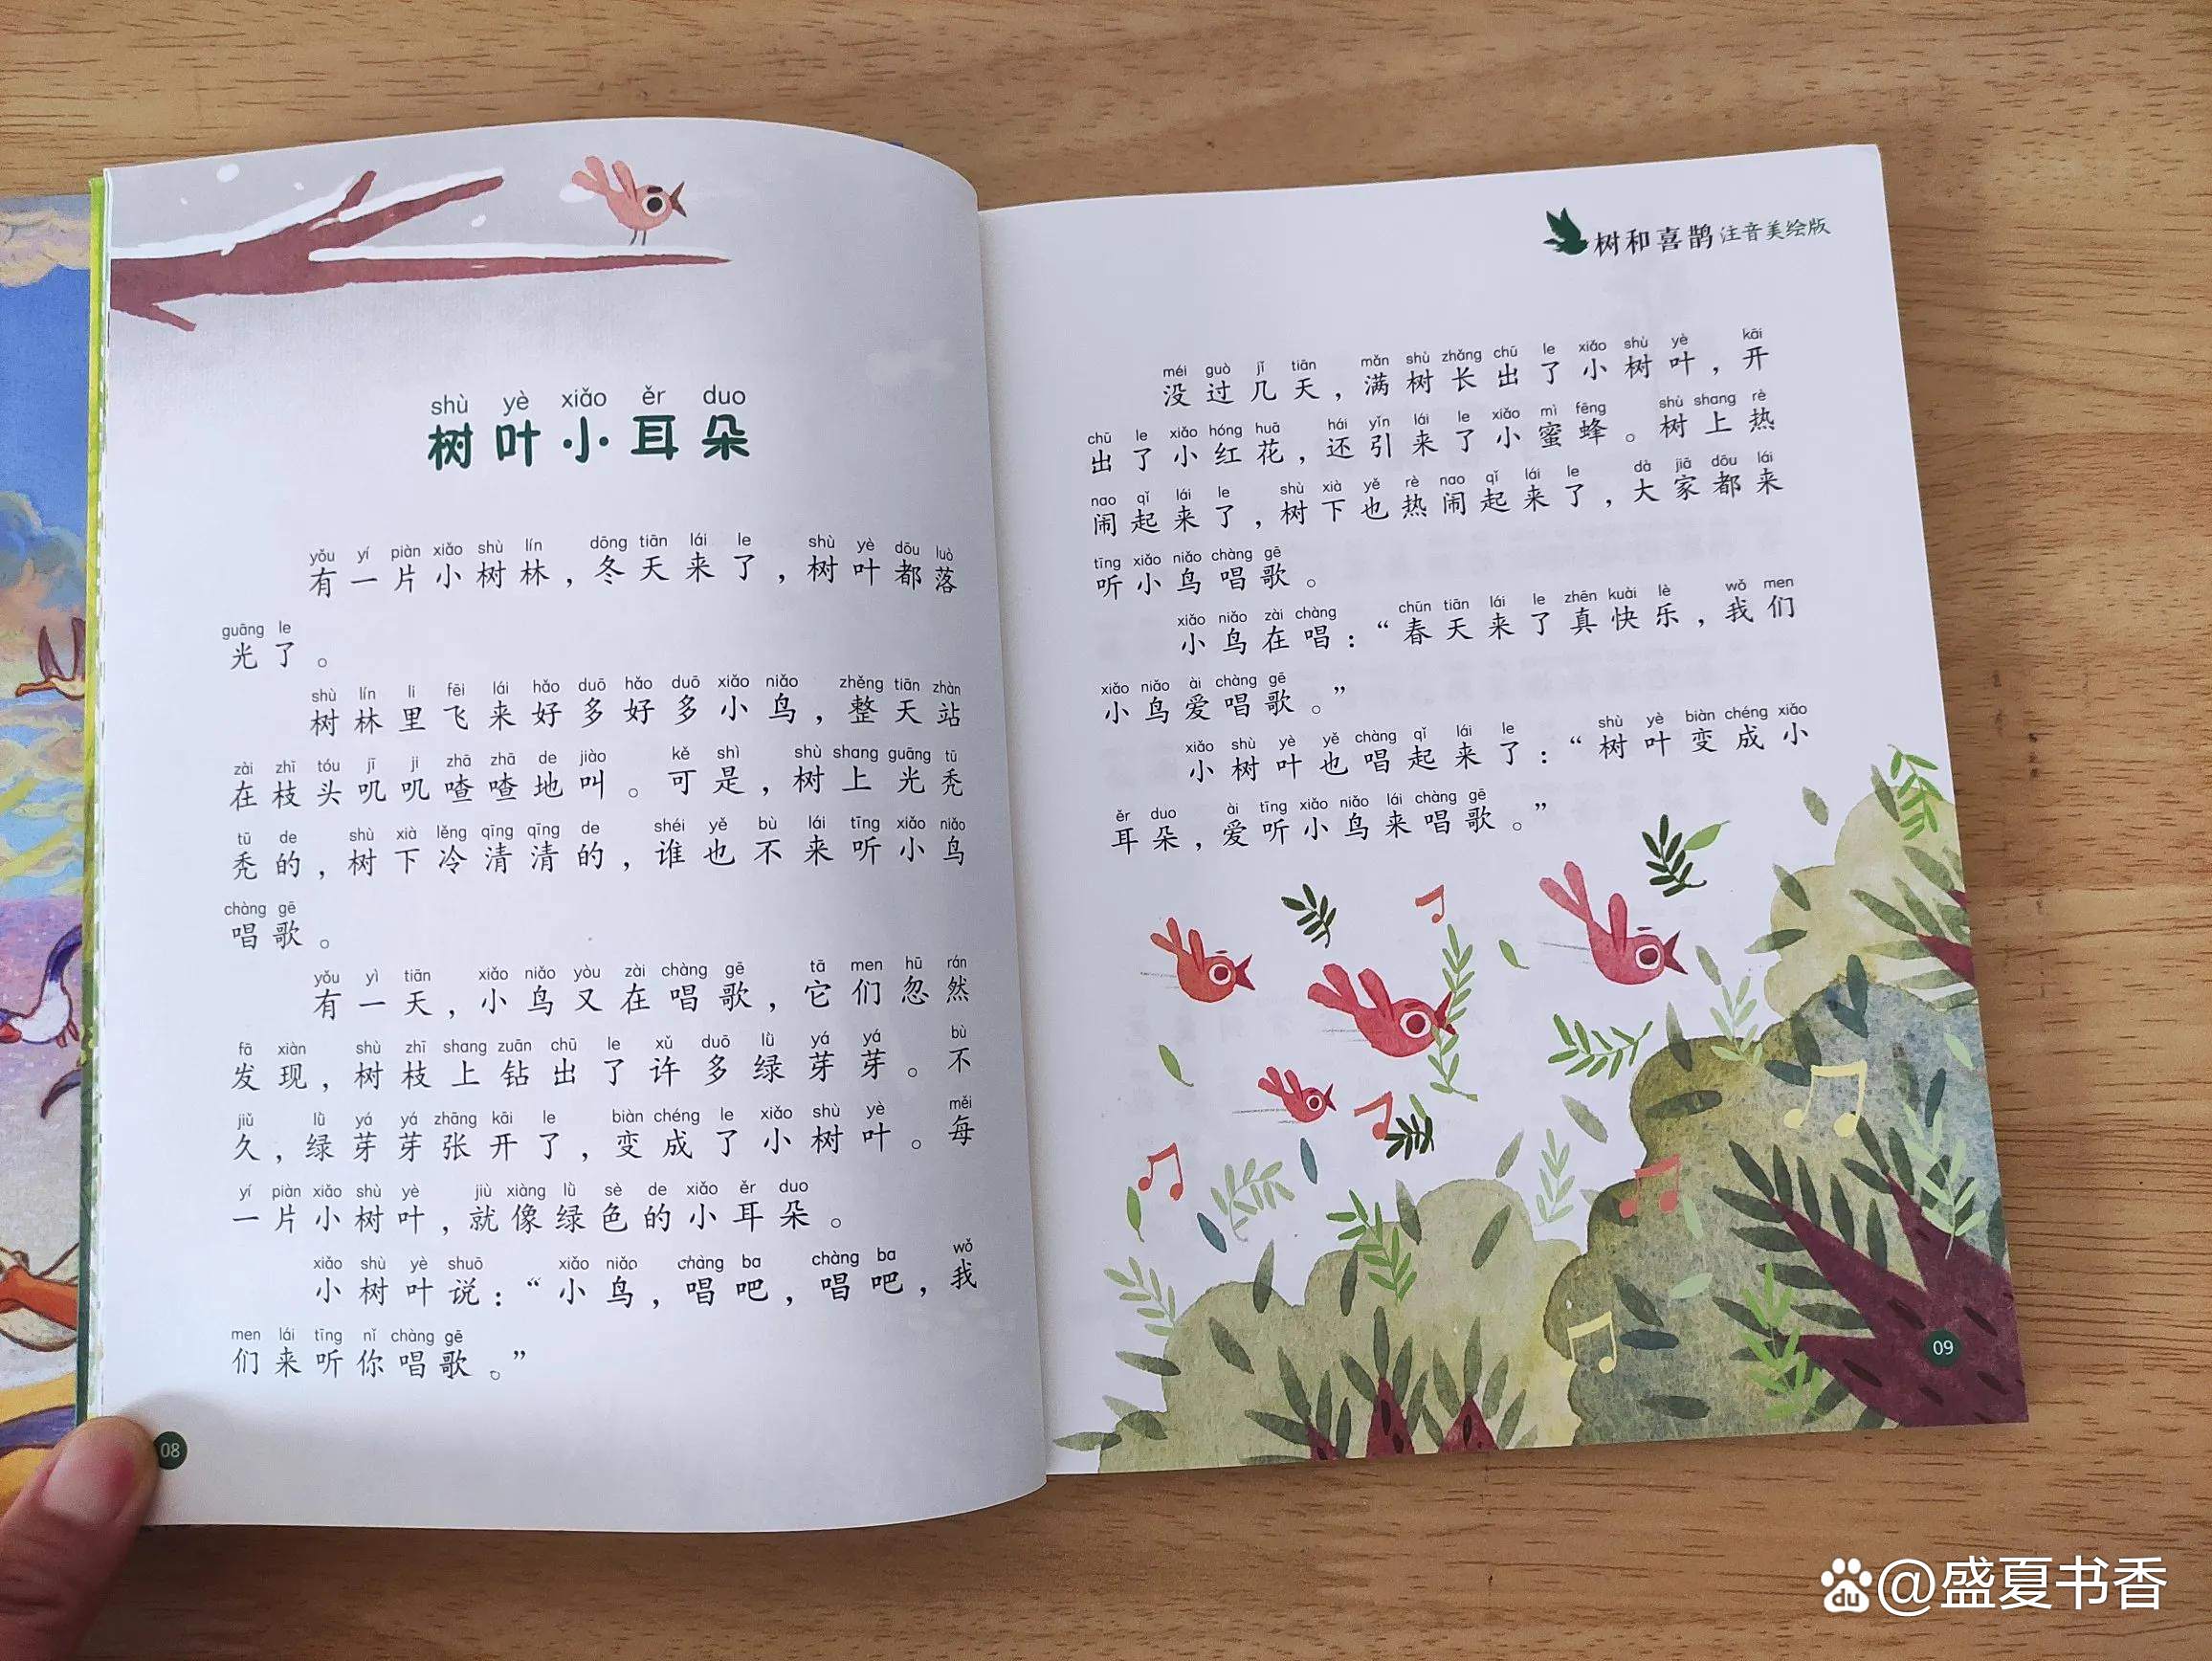 shù yè xiǎo ěr duo
树叶小耳朵
yǒu yí piàn xiǎo shù lín dōng tiān lái le shù yè dōu luò
有一片小树林，冬天来了，树叶都落
guāng le
光了。
shù lín li fēi lái hǎo duō hǎo duō xiǎo niǎo zhěng tiān zhàn
树林里飞来好多好多小鸟，整天站
zài zhī tóu jī ji zhā zhā de jiào kě shì shù shang guāng tū
在枝头叽叽喳喳地叫。可是，树上光秃
tū de shù xià lěng qīng qīng de shéi yě bù lái tīng xiǎo niǎo
秃的，树下冷清清的，谁也不来听小鸟
chàng gē
唱歌。
yǒu yì tiān xiǎo niǎo yòu zài chàng gē tā men hū rán
有一天，小鸟又在唱歌，它们忽然
fā xiàn shù zhī shang zuān chū le xǔ duō lǜ yá yá bù
发现，树枝上钻出了许多绿芽芽。不
jiǔ lǜ yá yá zhāng kāi le biàn chéng le xiǎo shù yè měi
久，绿芽芽张开了，变成了小树叶。每
yí piàn xiǎo shù yè jiù xiàng lǜ sè de xiǎo ěr duo
一片小树叶，就像绿色的小耳朵。
xiǎo shù yè shuō xiǎo niǎo chàng ba chàng ba wǒ
小树叶说：“小鸟，唱吧，唱吧，我
men lái tīng nǐ chàng gē
们来听你唱歌。”
08
树和喜鹊 注音美绘版
méi guò jǐ tiān mǎn shù zhǎng chū le xiǎo shù yè kāi
没过几天，满树长出了小树叶，开
chū le xiǎo hóng huā hái yǐn lái le xiǎo mì fēng shù shang rè
出了小红花，还引来了小蜜蜂。树上热
nao qǐ lái le shù xià yě rè nao qǐ lái le dà jiā dōu lái
闹起来了，树下也热闹起来了，大家都来
tīng xiǎo niǎo chàng gē
听小鸟唱歌。
xiǎo niǎo zài chàng chūn tiān lái le zhēn kuài lè wǒ men
小鸟在唱：“春天来了真快乐，我们
xiǎo niǎo ài chàng gē
小鸟爱唱歌。”
xiǎo shù yè yě chàng qǐ lái le shù yè biàn chéng xiǎo
小树叶也唱起来了：“树叶变成小
ěr duo ài tīng xiǎo niǎo lái chàng gē
耳朵，爱听小鸟来唱歌。”
09
du @盛夏书香